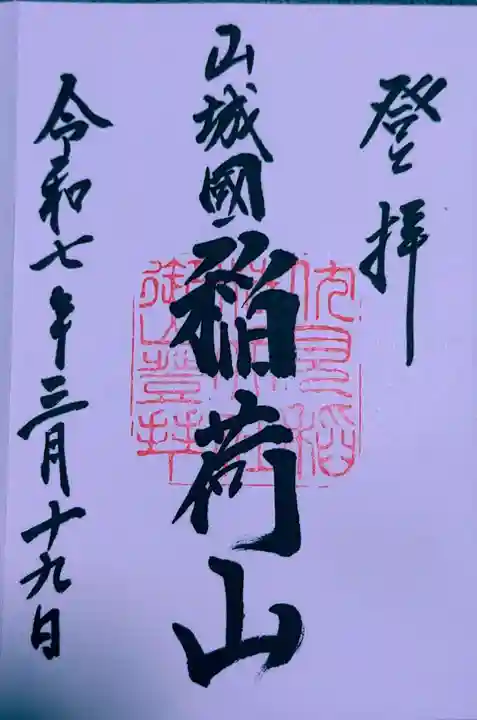 登拝
山城國稲荷山
令和七年三月十九日